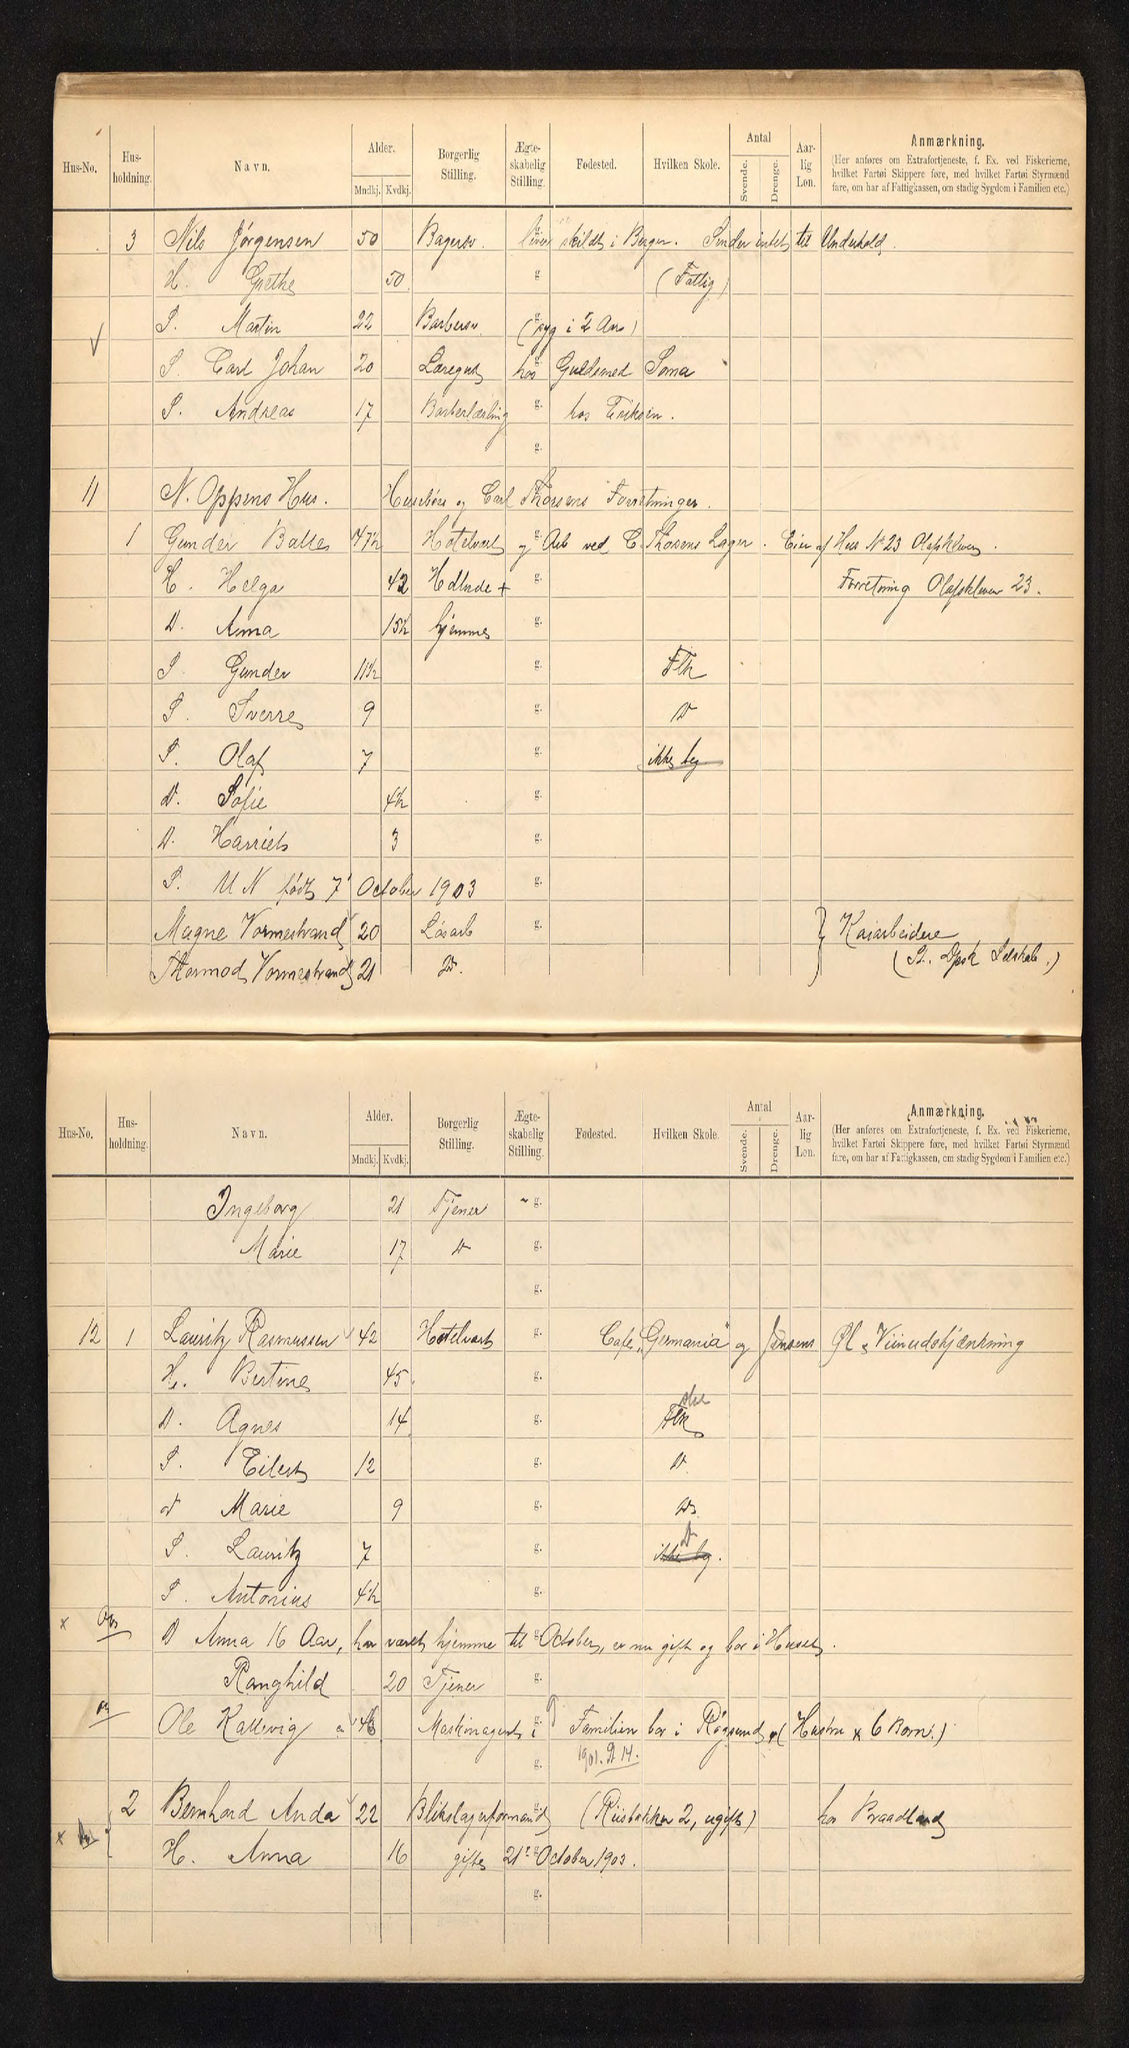 Hus-No. Hus-holdning. Navn. Alder. Mndkj. Kvdkj. Borgerlig Stilling. Ægte-skabelig Stilling. Fødested. Hvilken Skole. Antal Svende. Drenge. Aar-lig Løn. Anmærkning.
(Her anføres om Extrafortjeneste, f. Ex. ved Fiskerierne, hvilket Fartøi Skippere føre, med hvilket Fartøi Styrmænd fare, om har af Fattigkassen, om stadig Sygdom i Familien etc.)
3 Nils Jørgensen 50 Bagersv. g. lever skildt i Bergen. Sender intet til Underhold.
H. Grethe 50 g (Fattig)
S. Martin 22 Barbersv. g. (syg i 2 Aar)
S. Carl Johan 20 Læregut g. hos Guldsmed Soma
S. Andreas 17 Barberlærling g. hos Eriksen.
g.
11 N. Oppens Hus. og Carl Thorsens Forretninger.
1 Gunder Balle 47½ Hotelvært g. og Arb ved C. Thorsens Lager. Eier af Hus N 23 Olafskleven.
H. Helga 42 Hdlnde + g. Forretning Olafskleven 23.
D. Anna 15½ hjemme g.
S. Gunder 11½ g. Flk
S. Sverre 9 g. D
S. Olaf 7 g. ikke beg
D. Sofie 4½ g.
D. Harriet 3 g.
S. U N født 7' October 1903 g.
Magne Vormestrand 20 Løsarb g. } Kaiarbeidere
Thormod Vormestrand 21 D. (St. Dpsk Selskab.)
Hus-No. Hus-holdning. Navn. Alder. Mndkj. Kvdkj. Borgerlig Stilling. Ægte-skabelig Stilling. Fødested. Hvilken Skole. Antal Svende. Drenge. Aar-lig Løn. Anmærkning.
(Her anføres om Extrafortjeneste, f. Ex. ved Fiskerierne, hvilket Fartøi Skippere føre, med hvilket Fartøi Styrmænd fare, om har af Fattigkassen, om stadig Sygdom i Familien etc.)
Ingeborg 21 Tjener g.
Marie 17 D g.
g.
12 1 Lauritz Rasmussen 42 Hotelvært g. Cafe "Germania" og Jansens Øl & Viinudskjænkning
H. Bertine 45. g.
D. Agnes 14 g. Flk
S. Eilert 12 g. D
d Marie 9 g. D
S. Lauritz 7 g. D ikke beg.
S. Antonius 4½ g.
x D Anna 16 Aar, har været hjemme til g. October, er nu gift og bor i Huset.
Ranghild 20 Tjener g.
Ole Kallevig Maskinagent g. i Familien bor i (Hustru x 6 Børn.)
g. 1901. 14.
2 Bernhard Anda 22 Blikslagerformand g. (Riisbakken 2, ugift) hos Braadland
x H. Anna 16 gifte 21' October 1903.
g.